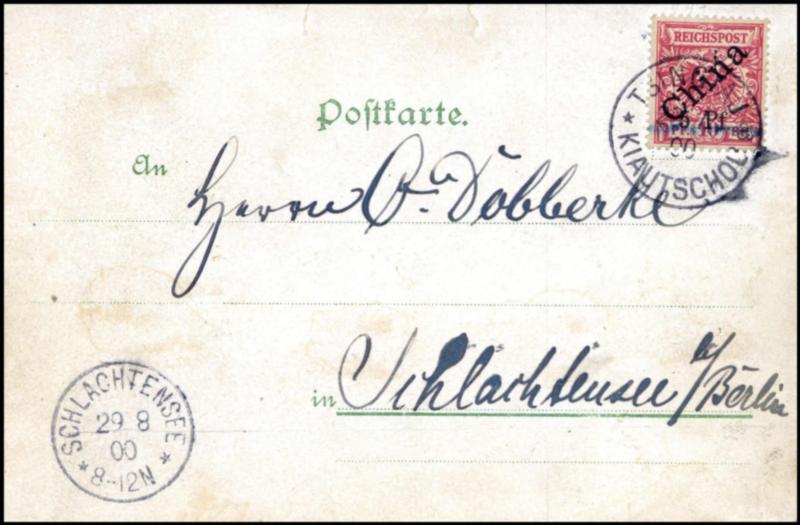 REICHSPOST
China
5 Pf
KIAUTSCHOU
00
Postkarte.
An
Herrn Döbberke
in Schlachtensee b/Berlin
SCHLACHTENSEE
29 8
00
8-12N